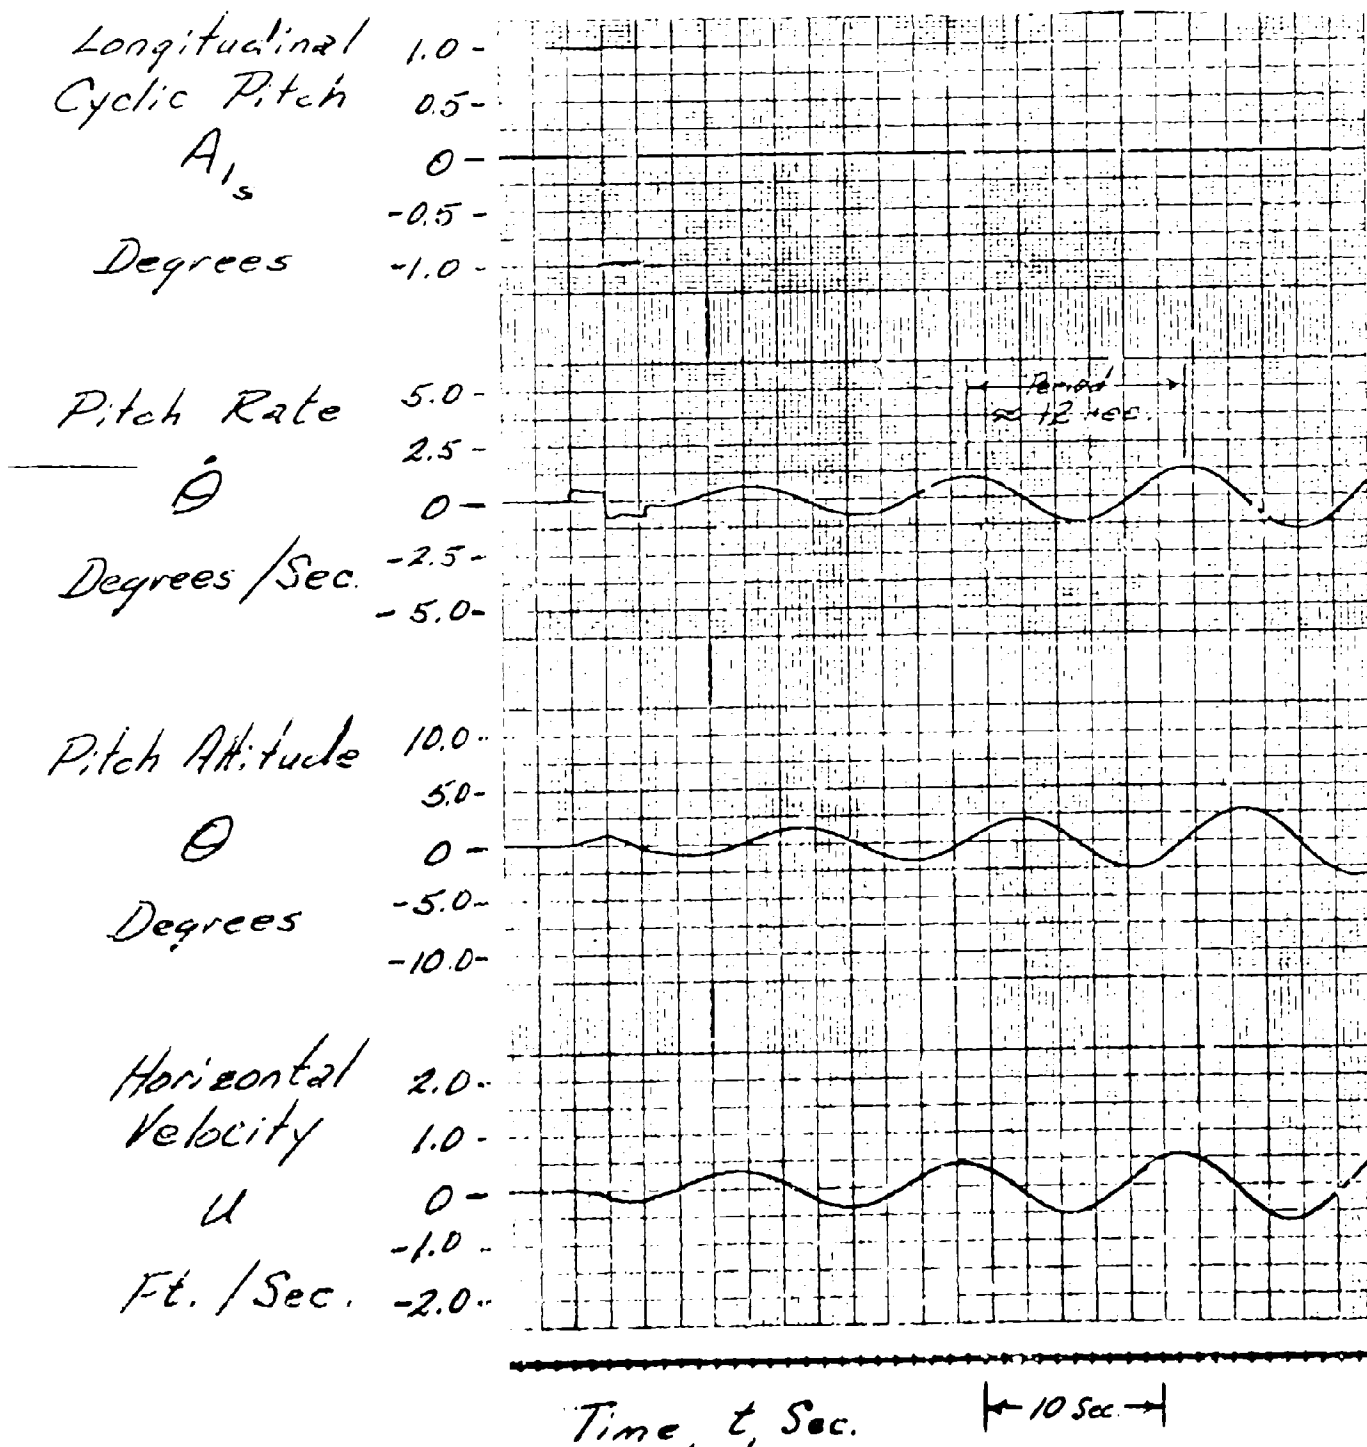 Longitudinal
Cyclic Pitch
A1s
Degrees
1.0
0.5
0
-0.5
-1.0
Pitch Rate
θ̇
Degrees/Sec.
5.0
2.5
0
-2.5
-5.0
Period
≈ 12 sec.
Pitch Attitude
θ
Degrees
10.0
5.0
0
-5.0
-10.0
Horizontal
Velocity
u
Ft./Sec.
2.0
1.0
0
-1.0
-2.0
Time, t, Sec.
10 Sec.